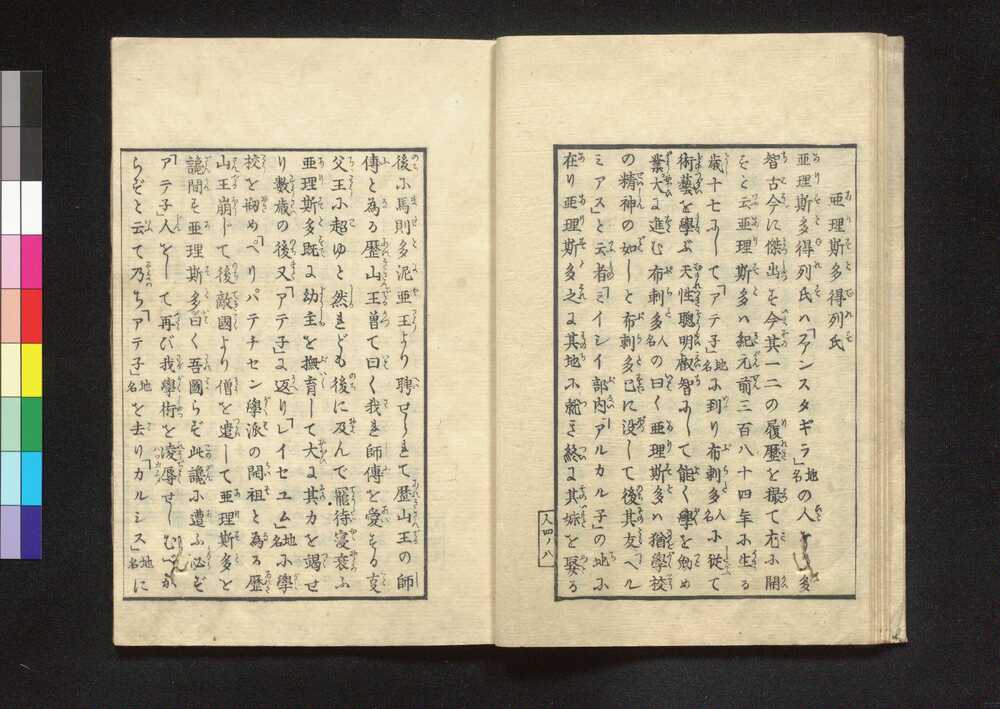 亜理斯多得列氏
亜理斯多得列氏ハ「アンスタギラ」地名の人 多
智古今に傑出す今其一二の履歴を撮て左に開
すと云亜理斯多ハ紀元前三百八十四年に生る
歳十七にして「アテ子」地名に到り布刺多人名に従て
術藝を學ぶ天性聰明叡智にして能く學を勉め
業大に進む布刺多人名の曰く亜理斯多ハ猶學校
の精神の如しと布刺多已に没して後其友「ヘル
ミアス」と云者「ミイシイ」部内「アルカル子」の地に
在り亜理斯多之に其地に就き終に其妹を娶る
入四ノ八
後に馬則多泥亜王より聘せられて歴山王の師
傳と為る歴山王曽て曰く我れ師傳を愛する支
父王に超ゆと然れども後に及んで寵待寝衰ふ
亜理斯多既に幼主を撫育して大に其力を竭せ
り數歳の後又「アテ子」に返り「レイセエム」地名に學
校を刱め「ペリパテチセン」學派の開祖と為る歴
山王崩じて後敵國より僧を遣して亜理斯多と
讒間す亜理斯多曰く吾國らず此讒に遭ふ必ず
「アテ子」人をして再び我學術を凌辱せしむべか
らずと云て乃ち「アテ子」地名を去り「カルシス」地名に